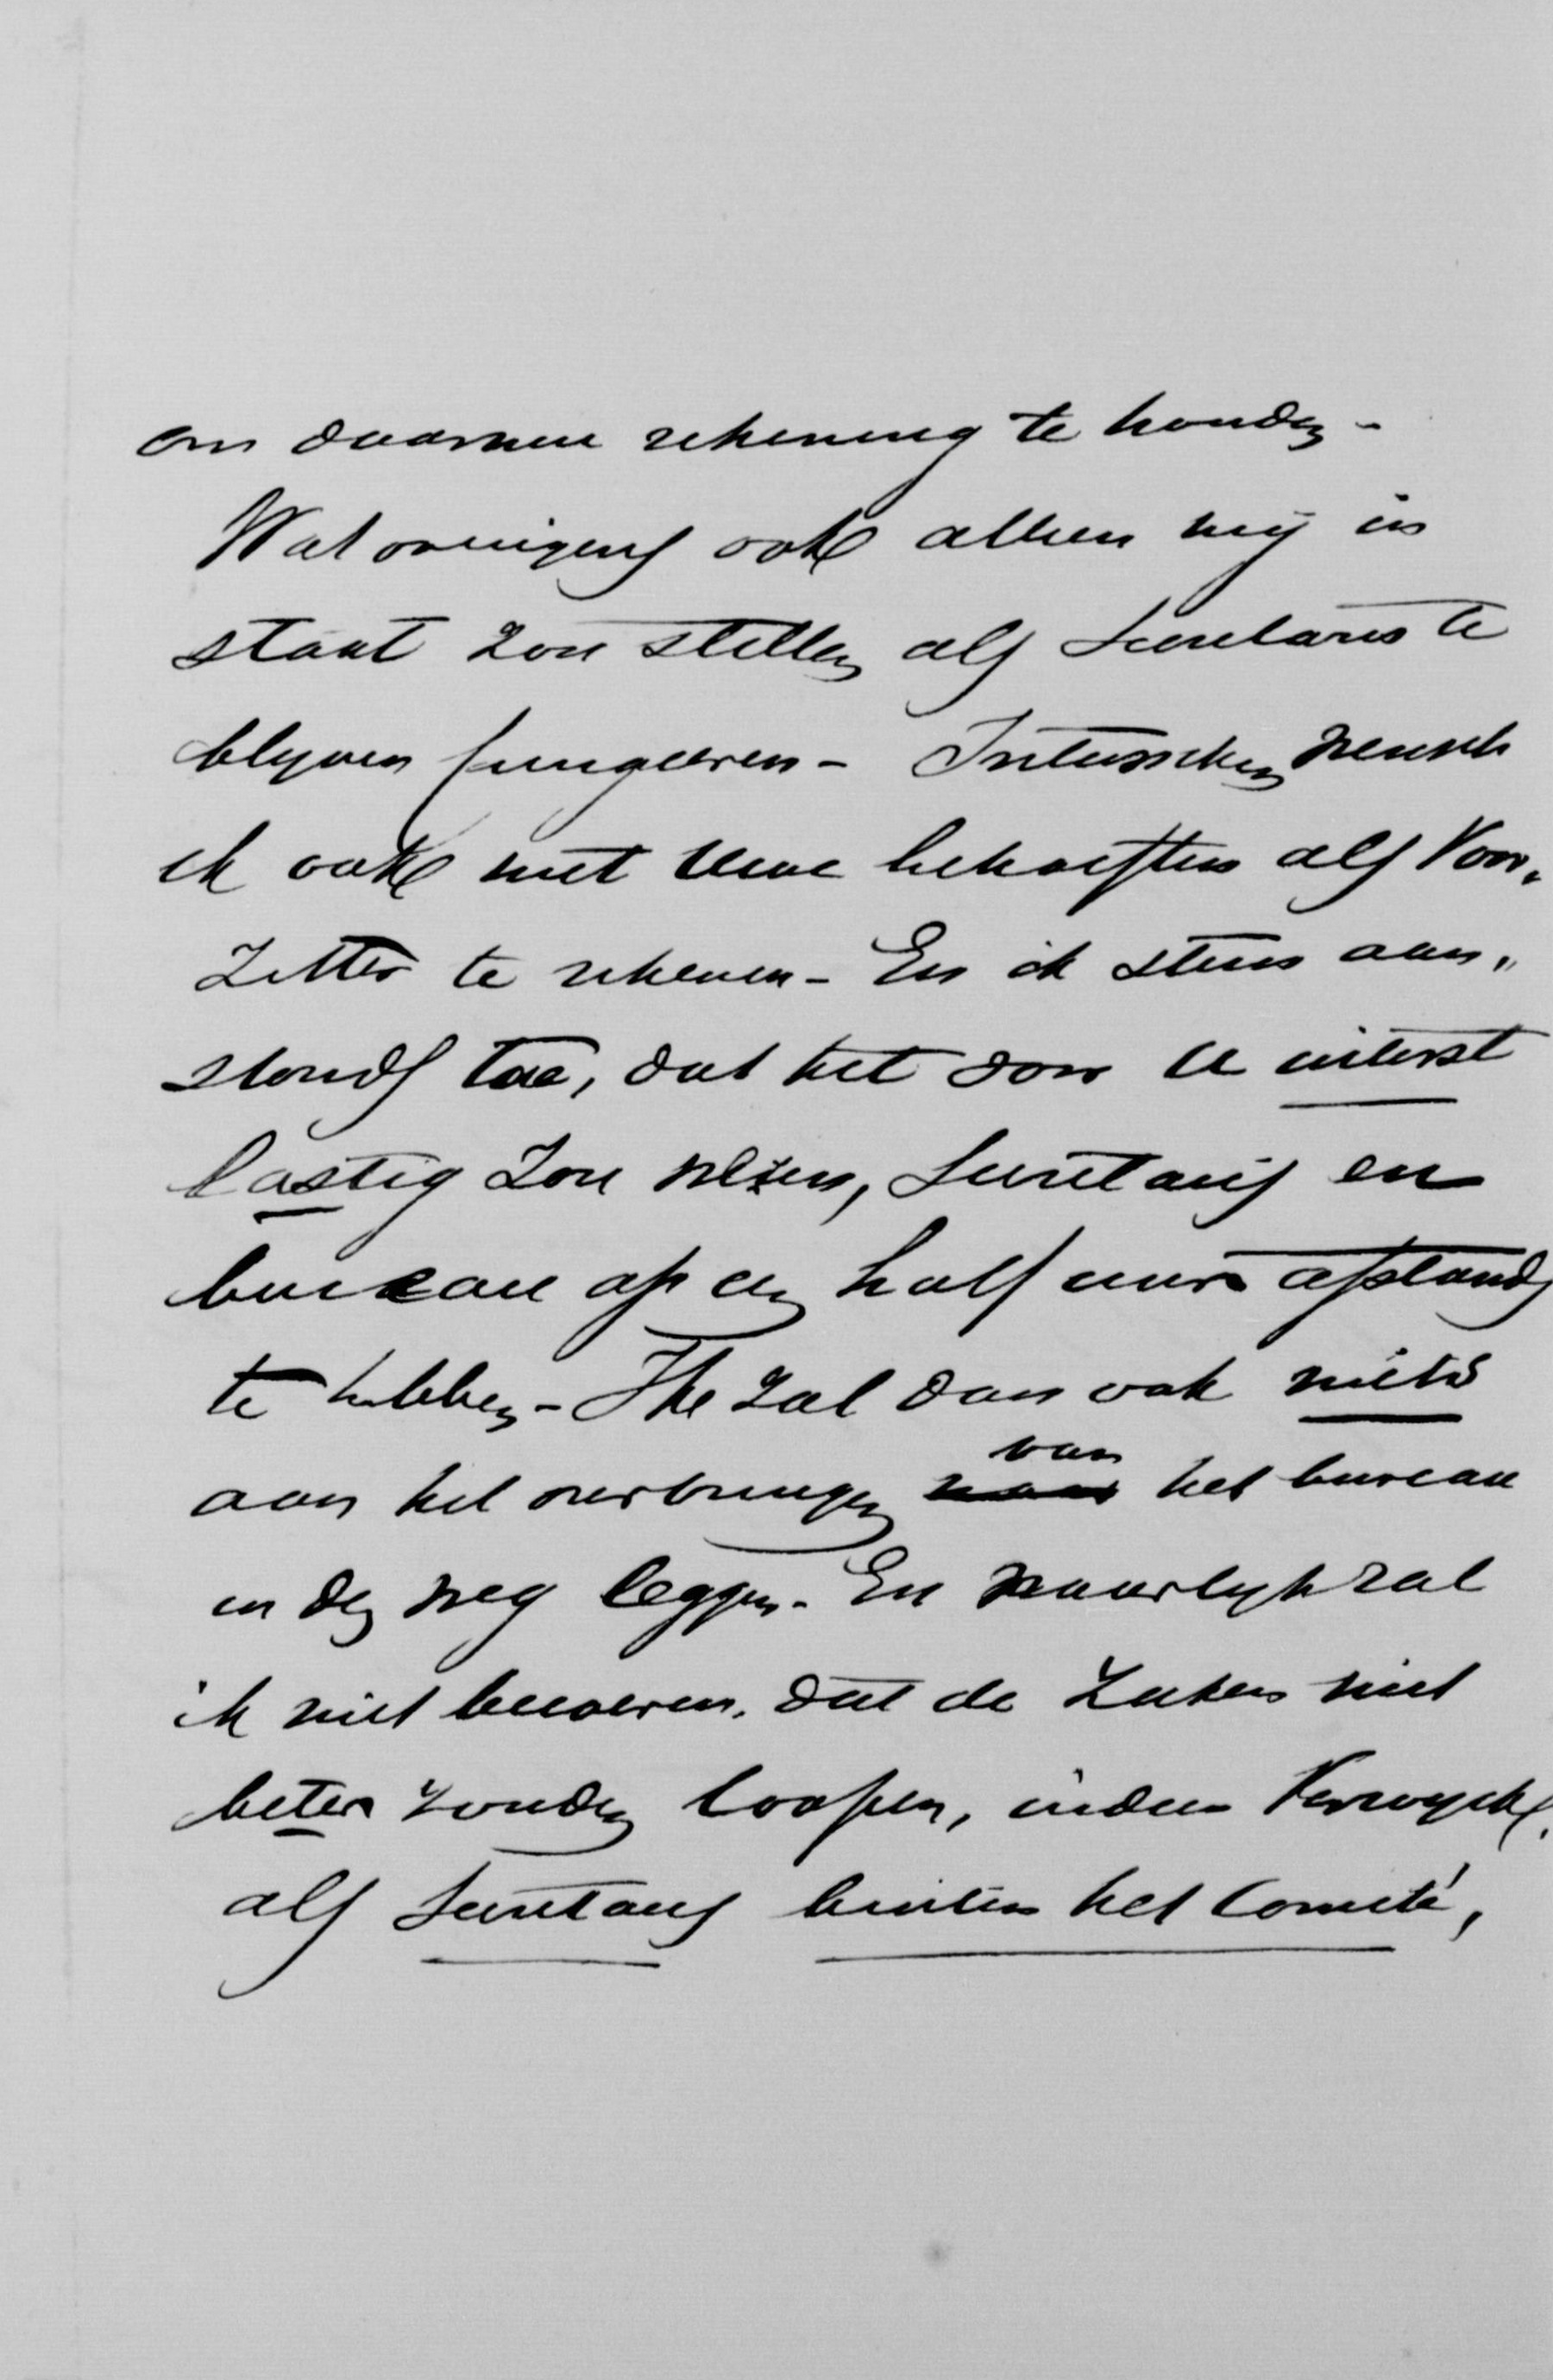 om daarmee rekening te houden -
Wat overigens ook alleen mij in
staat zou stellen als Secretaris te
blijven fungeeren - Intusschen wensch
ik ook met Uwe behoeften als Voor„
zitter te rekenen - En ik stem aan„
stonds toe, dat het voor U uiterst
lastig zou wezen, Secretaris en
bureau op een half uur afstands
te hebben - Ik zal dan ook niets
aan het overbrengen van het bureau
in den weg leggen. En waarlijk zal
ik niet beweren, dat de zaken niet
beter zouden loopen, indien Kerwyck,
als Secretaris buiten het Comité,